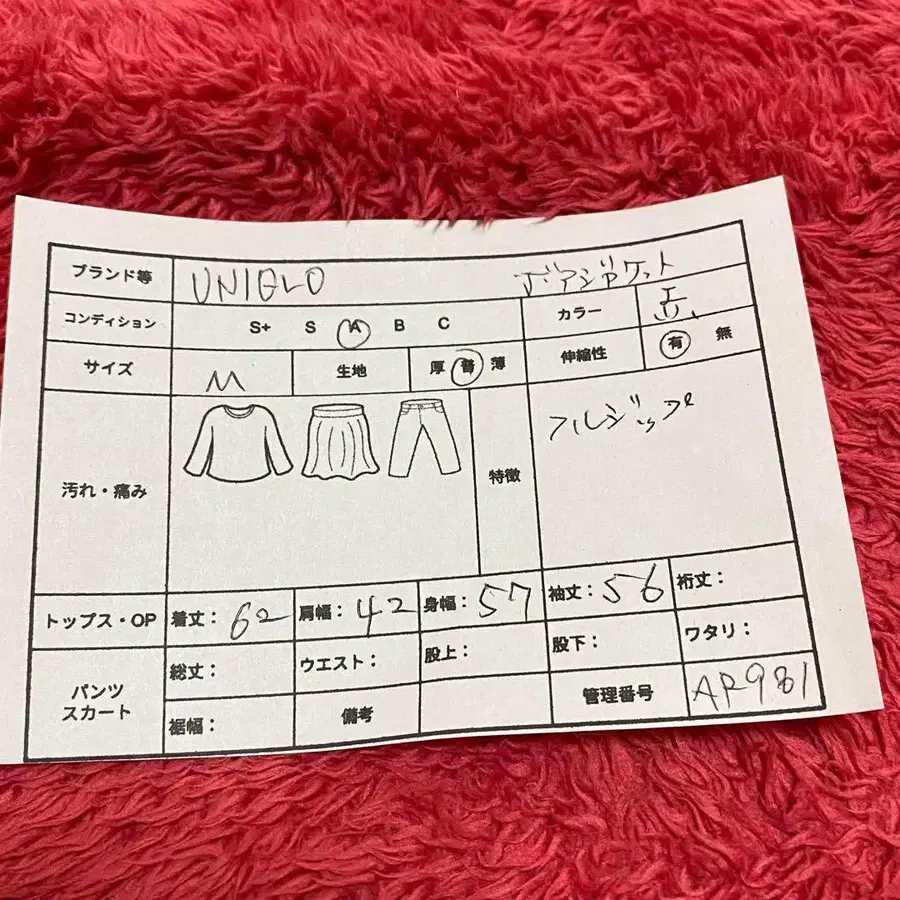 ブランド等 UNIGLO ボアジャケット
コンディション S+ S A B C カラー
サイズ M 生地 厚 普 薄 伸縮性 有 無
汚れ・痛み 特徴 フルジップ
トップス・OP 着丈: 62 肩幅: 42 身幅: 57 袖丈: 56 裄丈:
パンツ スカート
総丈: ウエスト: 股上: 股下: ワタリ:
裾幅: 備考 管理番号 AR981